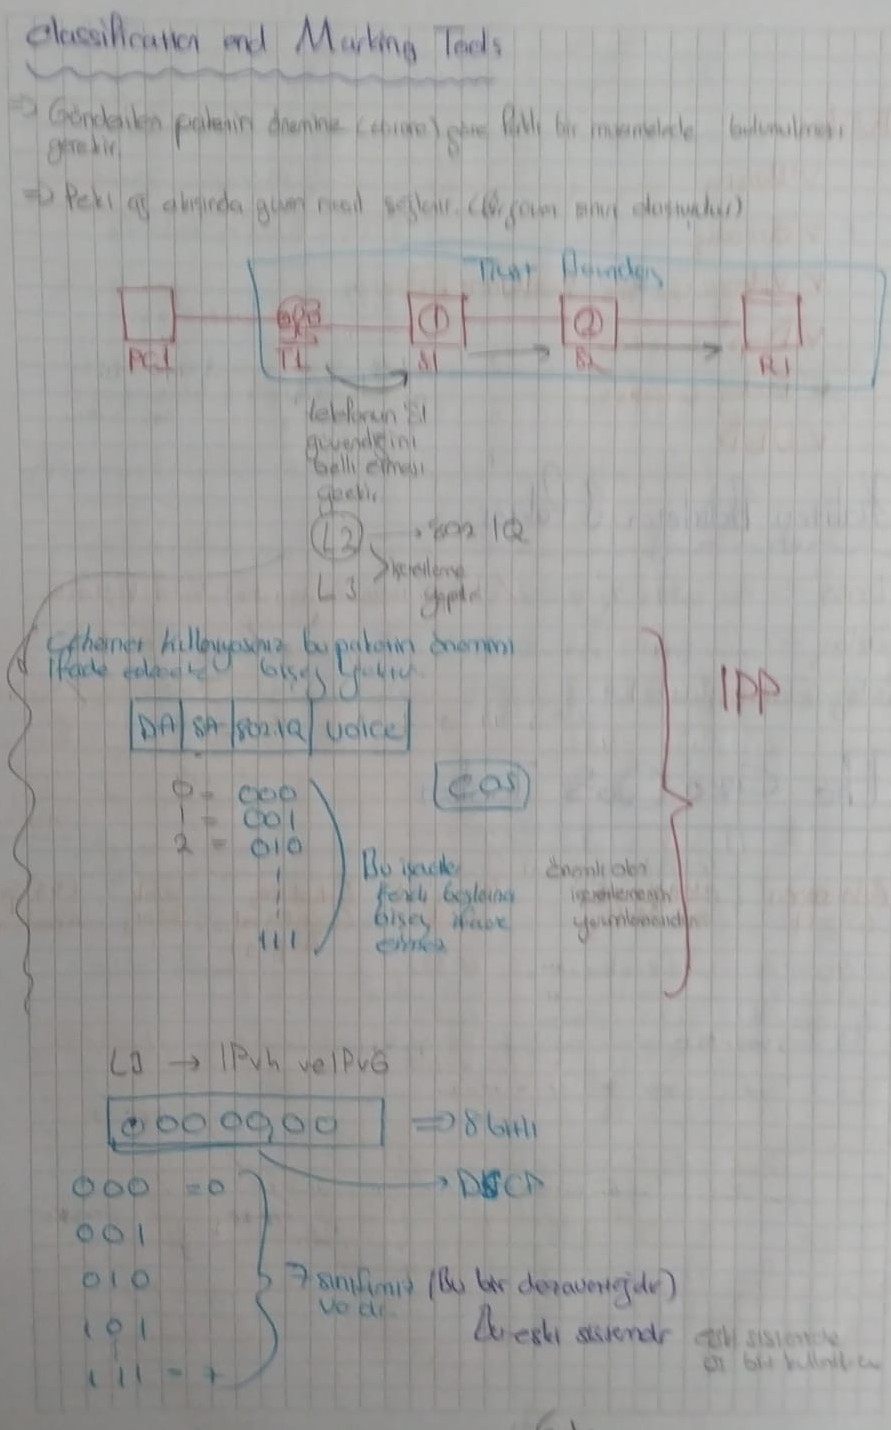 Classification and Marking Tools
⇒ Gönderilen paketin önemine göre farklı bir muamelede bulunulması
gerekir.
⇒ Peki ağ altyapısında güven nasıl sağlanır.
Trust Boundary
PC1 T1 ① S1 ② S2 R1
telefonun S1
güvendiğini
belli etmesi
gerekir.
L2 → 802 1Q
L3 işaretleme
yapılır
Ethernet kullanıyorsanız bu paketin önemini
ifade edecek bişey yoktur.
IPP
DA SA 802.1Q voice
COS
0 = 000
1 = 001
2 = 010
111
Bu işaretler
farklı başlarına
bişey ifade
etmez
önemli olan
işaretlemenin
L3 → IPv4 ve IPv6
0000 0000 ⇒ 8 bitli
→ DSCP
000 = 0
001
010
101
111 = 7
7 sınıfımız (Bu bir dezavantajdır)
vardır.
Bu eski sistemdir
eski sistemde